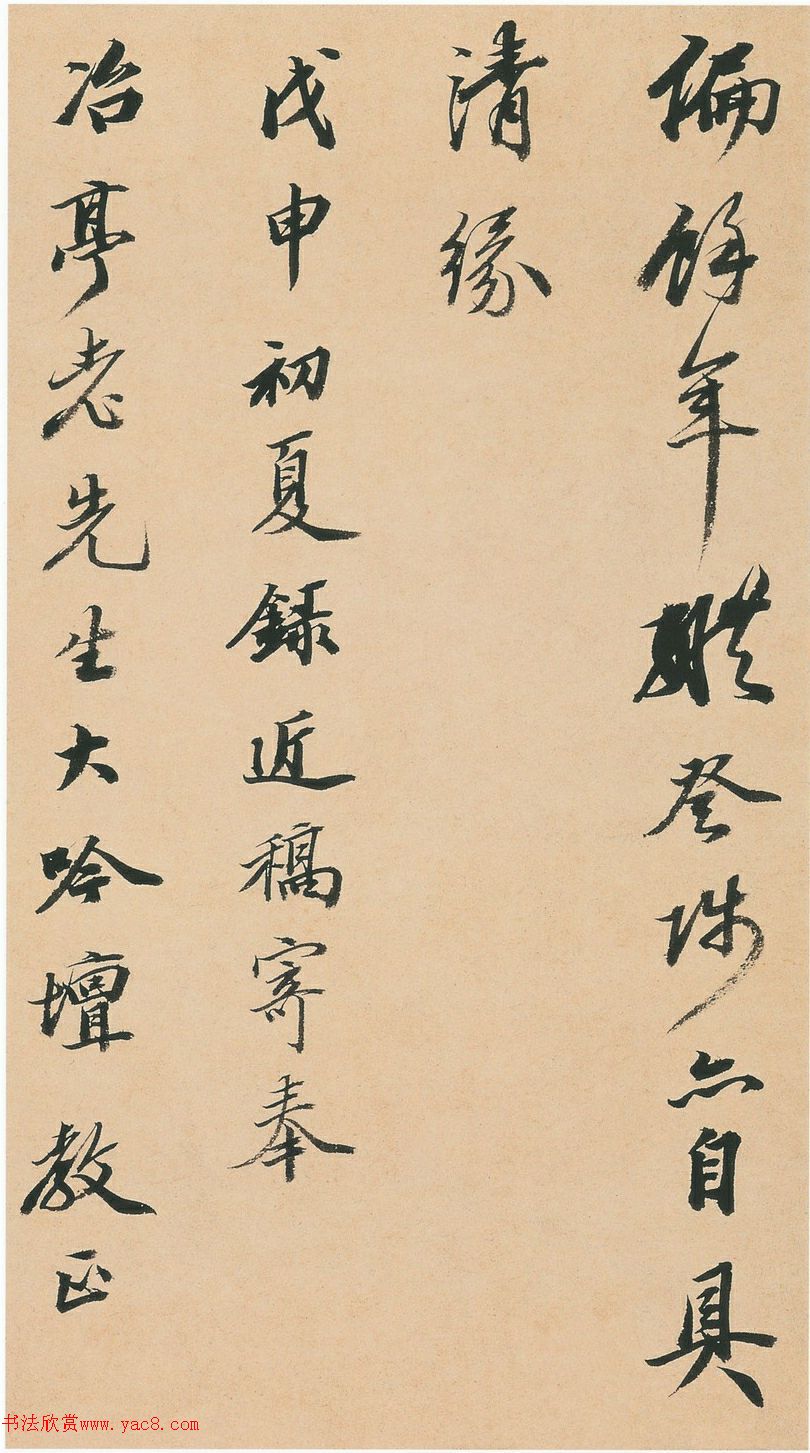 偏饒年
登陟亦自具
清緣
戊申初夏録近稿寄奉
冶亭老先生大吟壇教正
书法欣赏www.yac8.com